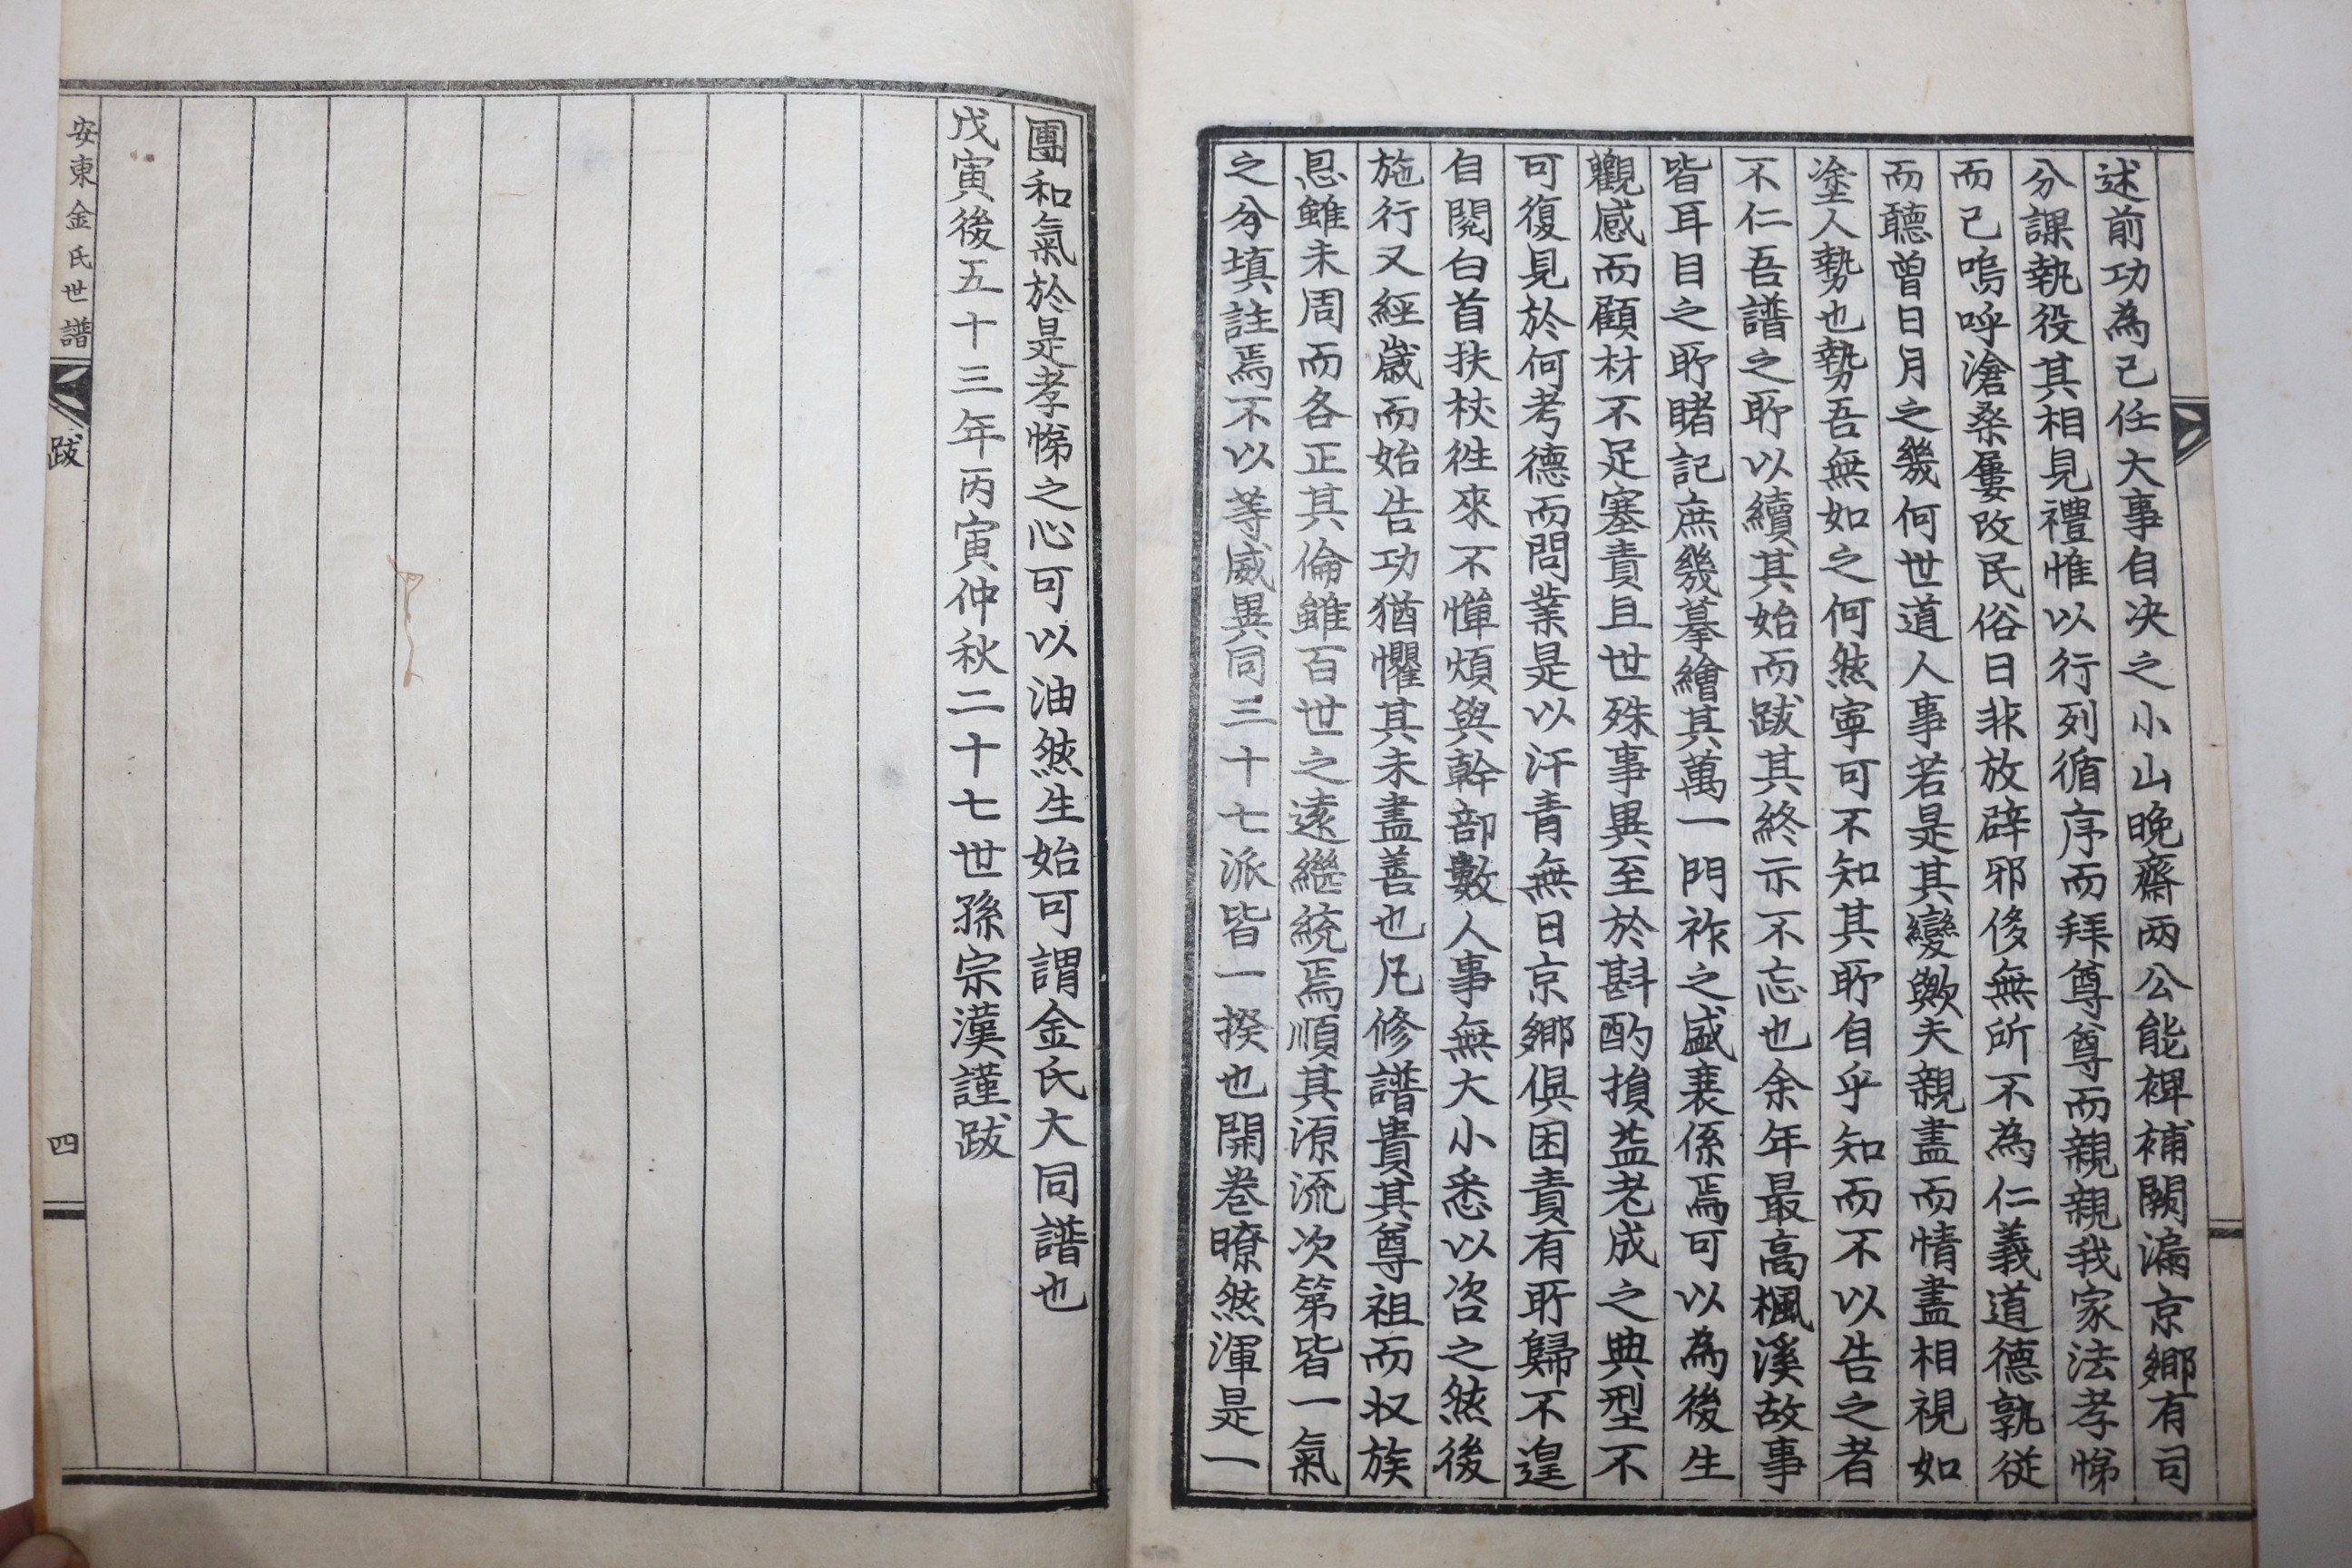 述前功為己任大事自決之小山晚齋兩公能裨補闕漏京鄉有司
分課執役其相見禮惟以行列循序而拜尊尊而親親我家法孝悌
而已嗚呼滄桑屢改民俗日非放辟邪侈無所不為仁義道德孰從
而聽曾日月之幾何世道人事若是其變歟夫親盡而情盡相視如
塗人勢也勢吾無如之何然寧可不知其所自乎知而不以告之者
不仁吾譜之所以續其始而跋其終示不忘也余年最高楓溪故事
皆耳目之所睹記庶幾摹繪其萬一門祚之盛衰係焉可以為後生
觀感而顧材不足塞責且世殊事異至於斟酌損益老成之典型不
可復見於何考德而問業是以汗青無日京鄉俱困責有所歸不遑
自閑白首扶杖徃來不憚煩與幹部數人事無大小悉以咨之然後
施行又經歲而始告功猶懼其未盡善也凡修譜貴其尊祖而収族
恩雖未周而各正其倫雖百世之遠繼統焉順其源流次第皆一氣
之分填註焉不以等威異同三十七派皆一揆也開卷暸然渾是一
團和氣於是孝悌之心可以油然生始可謂金氏大同譜也
戊寅後五十三年丙寅仲秋二十七世孫宗漢謹跋
安東金氏世譜 跋 四